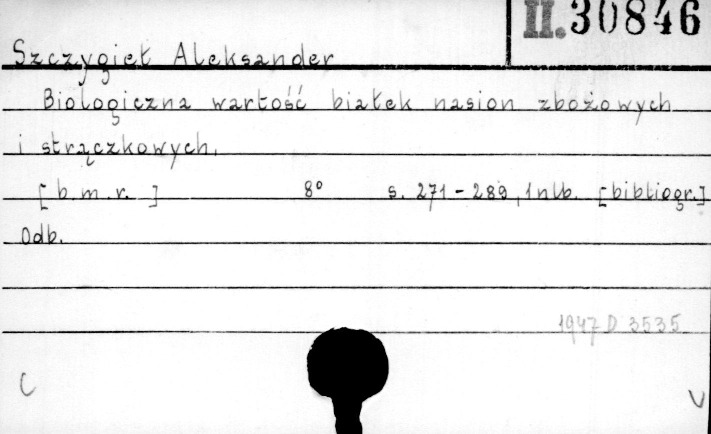 II. 30846
Szczygieł Aleksander
Biologiczna wartość białek nasion zbożowych
i strączkowych.
[b.m.r.] 8° s. 271-289, 1 nlb. [bibliogr.]
Odb.
1947 D 3535
C V